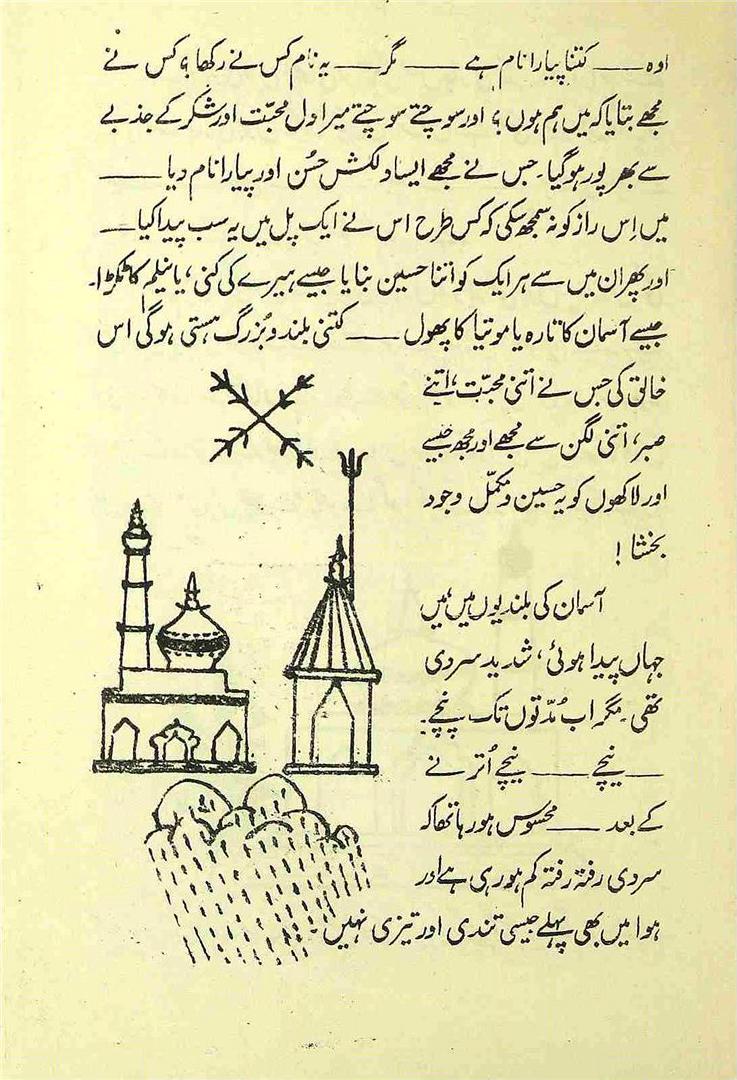 اوہ ــــــ کتنا پیارا نام ہے ــــــ مگر ــــــ یہ نام کس نے رکھا؟ کس نے
مجھے بتایا کہ میں ہم ہوں؟ اور سوچتے سوچتے میرا دل محبّت اور شکر کے جذبے
سے بھرپور ہو گیا۔ جس نے مجھے ایسا دلکش حُسن اور پیارا نام دیا ــــــ
میں اِس راز کو نہ سمجھ سکی کہ کس طرح اس نے ایک پل میں یہ سب پیدا کیا ــــــ
اور پھر ان میں سے ہر ایک کو اتنا حسین بنایا جیسے ہیرے کی کنی، یا نیلم کا ٹکڑا۔
جیسے آسمان کا تارہ یا موتیا کا پھول ــــــ کتنی بلند و بُزرگ ہستی ہوگی اس
خالق کی جس نے اتنی محبّت، اتنے
صبر، اتنی لگن سے مجھے اور مجھ جیسے
اور لاکھوں کو یہ حسین و مکمّل وجود
بخشا!
آسمان کی بلندیوں میں، میں
جہاں پیدا ہوئی، شدید سردی
تھی۔ مگر اب مُدّتوں تک نیچے۔
ــــــ نیچے ــــــ نیچے اُترنے
کے بعد ــــــ محسوس ہو رہا تھا کہ
سردی رفتہ رفتہ کم ہو رہی ہے اور
ہوا میں بھی پہلے جیسی تندی اور تیزی نہیں۔